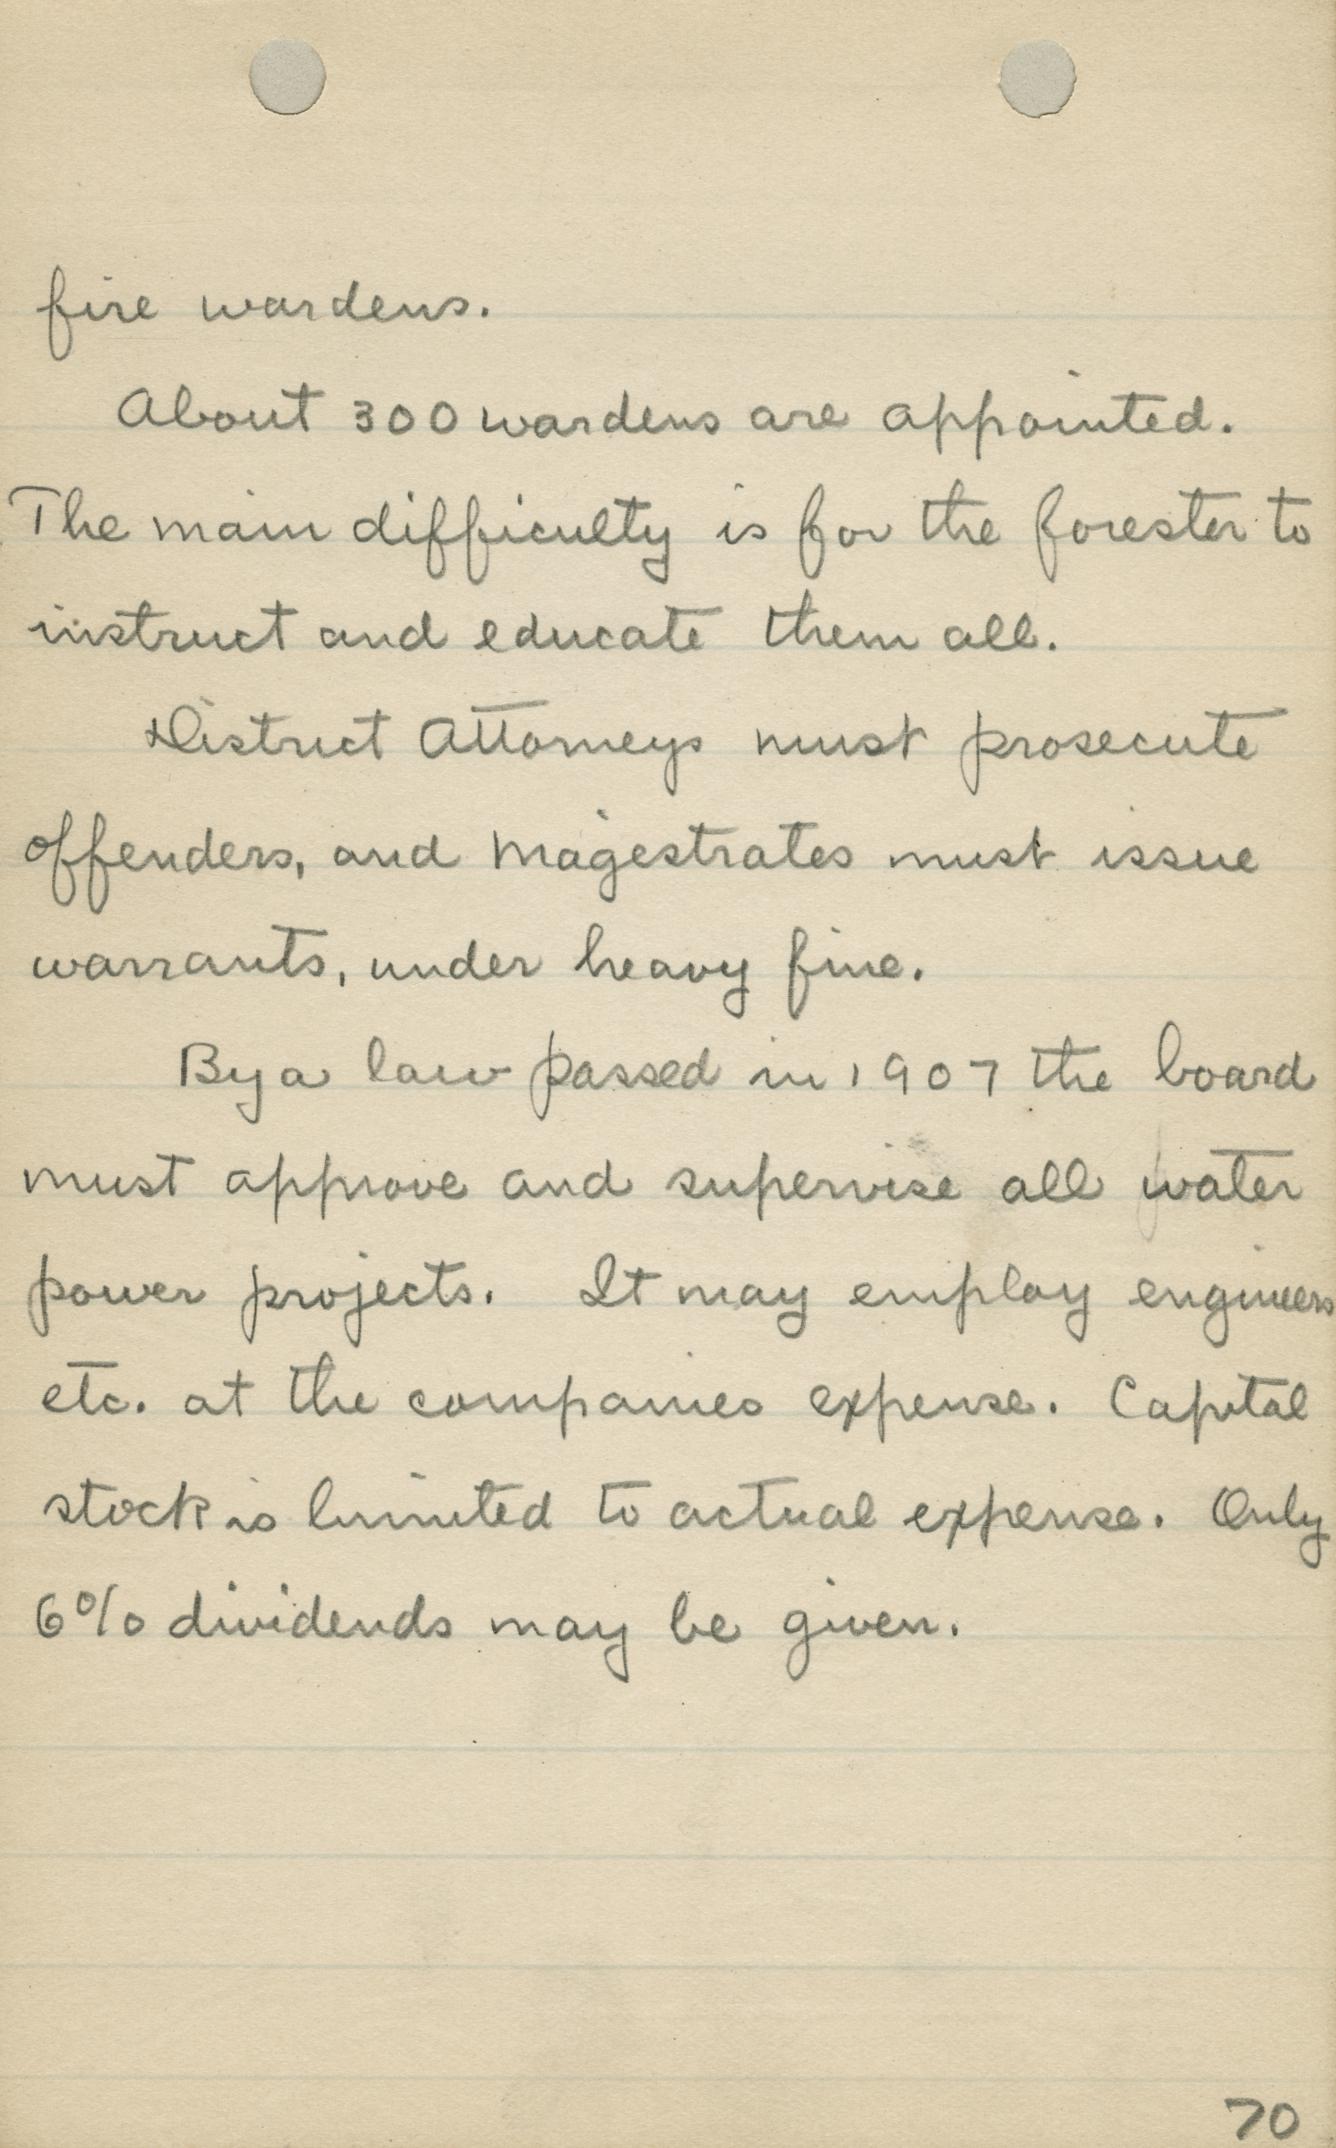 fire wardens.
About 300 wardens are appointed.
The main difficulty is for the forester to
instruct and educate them all.
District Attorneys must prosecute
offenders, and magestrates must issue
warrants, under heavy fine.
By a law passed in 1907 the board
must approve and supervise all water
power projects. It may employ engineers
etc. at the companies expense. Capital
stock is limited to actual expense. Only
6% dividends may be given.
70